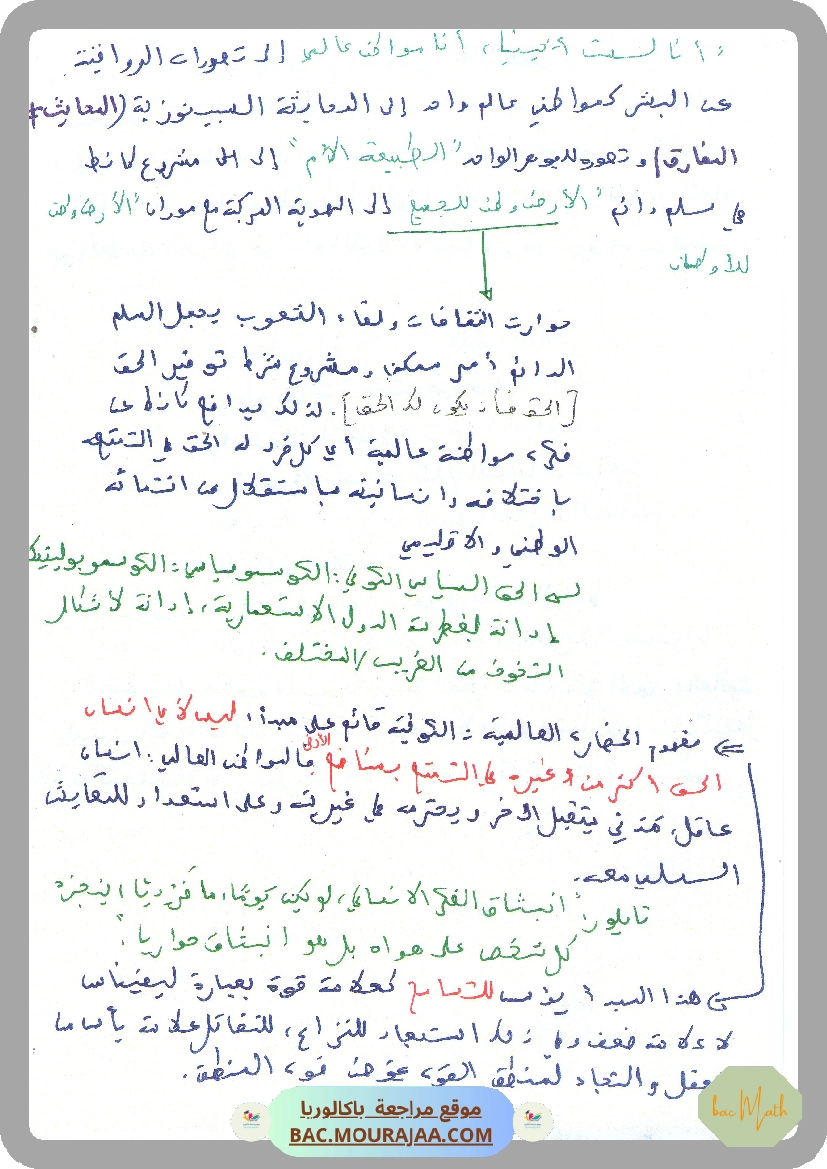 : أنا لست أثينيا، أنا مواطن عالمي إلى تصورات الرواقية
عن البشر كمواطني عالم واحد إلى المحايثة السبينوزية (التعايش ≠
التفارق) وتصوره للجوهر الواحد "الطبيعة الأم" إلى مشروع كانط
في سلم دائم "الأرض وطن للجميع إلى الهوية المركبة مع موران "الأرض وطن
للأوطان
حوارت الثقافات ولقاء الشعوب يجعل السلم
الدائم أمر ممكن ومشروع شرط توفير الحق
[الحق في أن يكون لك الحق]. لذلك يدافع كانط عن
فكرة مواطنة عالمية أي كل فرد له الحق في التمتع
باختلافه وإنسانيته باستقلال عن انتمائه
الوطني والاقليمي
الحق السياسي الكوني: الكوسموسياسي: الكوسموبوليتيك
إدانة لغطرسة الدول الاستعمارية، إدانة لأشكال
التخوف من الغريب/المختلف.
⇐ مفهوم الحضارة العالمية: الكونية قائم على مبدأ: ليس لأي انسان
الحق أكثر من غيره في التمتع بمنافع الأرض فالمواطن العالمي: انسان
عاقل، مدني يتقبل الآخر ويحترمه في غيريته وعلى استعداد للتعايش
السلمي معه.
تايلور: "انبثاق الفكر الانساني، لم يكن يوما ما فرديا، ينجزه
كل شخص على هواه بل هو انبثاق حواريا".
هذا المبدأ يؤسس للتسامح كعلامة قوة بعبارة ليفيناس
لا علامة ضعف وفي ذلك استبعاد للنزاع، للتقاتل علامة يأس ما
العقل والتجاء لمنطق القوة عوض قوة المنطق.
موقع مراجعة باكالوريا
BAC.MOURAJAA.COM
bac Math